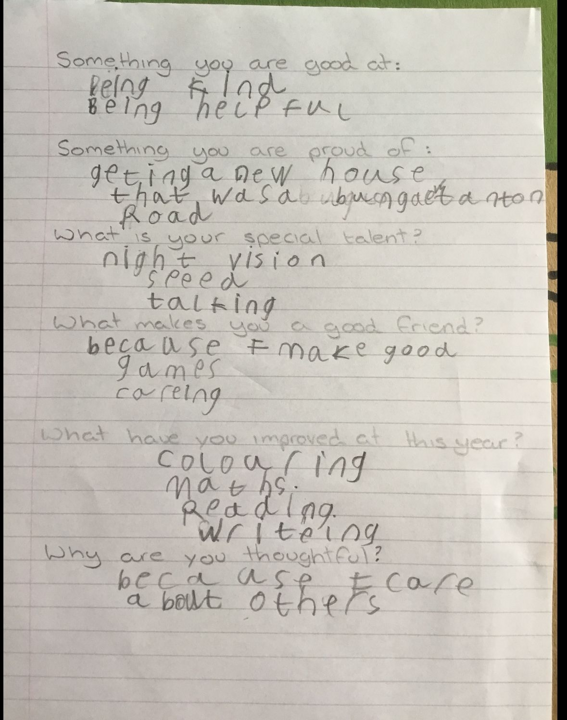 Something you are good at:
Being kind
Being helpful
Something you are proud of:
geting a new house
that was a
Road
What is your special talent?
night vision
speed
talking
What makes you a good friend?
because I make good
games
careing
What have you improved at this year?
colouring
Maths.
Reading.
writeing
Why are you thoughtful?
because I care
about others